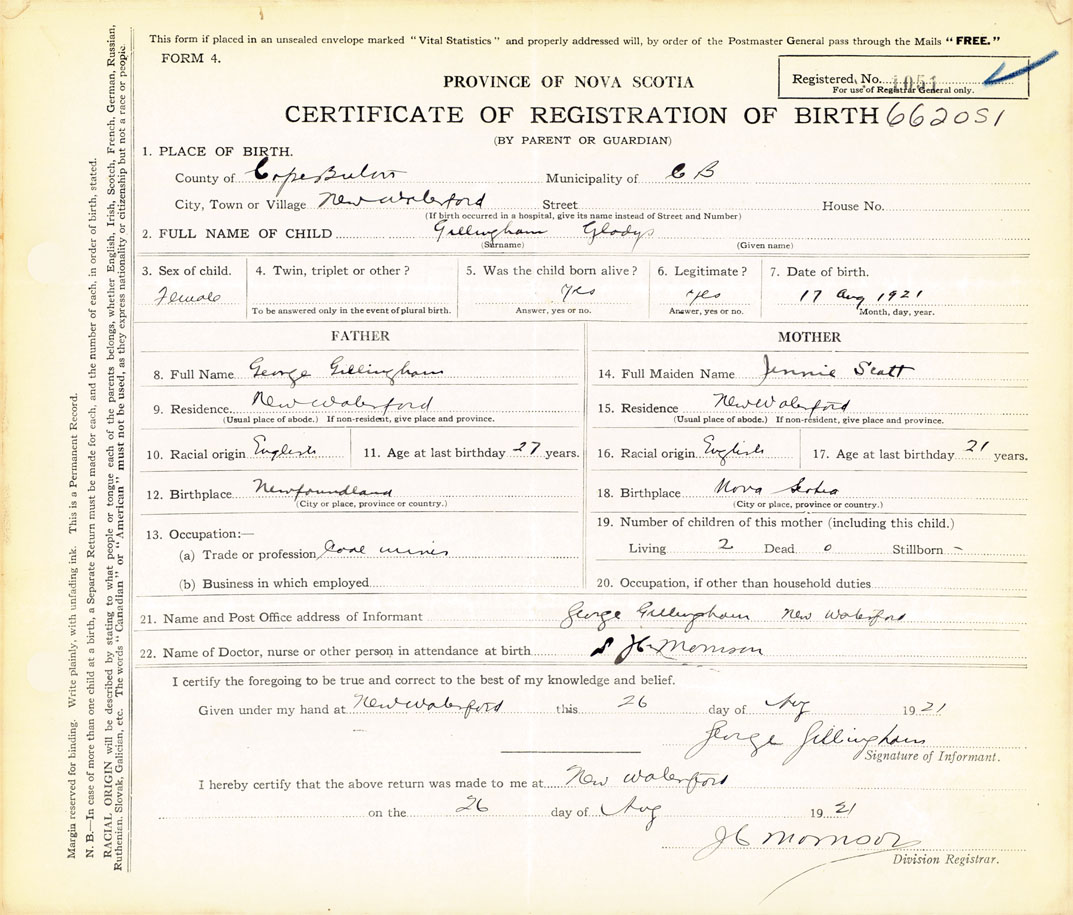 This form if placed in an unsealed envelope marked "Vital Statistics" and properly addressed will, by order of the Postmaster General pass through the Mails "FREE."
FORM 4.
PROVINCE OF NOVA SCOTIA
Registered, No. 1051
For use of Registrar General only.
CERTIFICATE OF REGISTRATION OF BIRTH 662051
(BY PARENT OR GUARDIAN)
1. PLACE OF BIRTH.
County of Cape Breton Municipality of C B
City, Town or Village New Waterford Street House No.
(If birth occurred in a hospital, give its name instead of Street and Number)
2. FULL NAME OF CHILD Gillingham Gladys
(Surname) (Given name)
3. Sex of child. 4. Twin, triplet or other? 5. Was the child born alive? 6. Legitimate? 7. Date of birth.
Female yes yes 17 Aug 1921
To be answered only in the event of plural birth. Answer, yes or no. Answer, yes or no. Month, day, year.
FATHER MOTHER
8. Full Name George Gillingham 14. Full Maiden Name Jennie Scott
9. Residence New Waterford 15. Residence New Waterford
(Usual place of abode.) If non-resident, give place and province. (Usual place of abode.) If non-resident, give place and province.
10. Racial origin English 11. Age at last birthday 27 years. 16. Racial origin English 17. Age at last birthday 21 years.
12. Birthplace Newfoundland 18. Birthplace Nova Scotia
(City or place, province or country.) (City or place, province or country.)
13. Occupation:— 19. Number of children of this mother (including this child.)
(a) Trade or profession Coal miner Living 2 Dead 0 Stillborn -
(b) Business in which employed 20. Occupation, if other than household duties
21. Name and Post Office address of Informant George Gillingham New Waterford
22. Name of Doctor, nurse or other person in attendance at birth Morrison
I certify the foregoing to be true and correct to the best of my knowledge and belief.
Given under my hand at New Waterford this 26 day of Aug 1921
George Gillingham
Signature of Informant.
I hereby certify that the above return was made to me at New Waterford
on the 26 day of Aug 1921
Morrison
Division Registrar.
Margin reserved for binding. Write plainly, with unfading ink. This is a Permanent Record.
N. B.—In case of more than one child at a birth, a Separate Return must be made for each, and the number of each, in order of birth, stated.
RACIAL ORIGIN will be described by stating to what people or tongue each of the parents belongs, whether English, Irish, Scotch, French, German, Russian,
Ruthenian, Slovak, Galician, etc. The words "Canadian" or "American" must not be used, as they express nationality or citizenship but not a race or people.